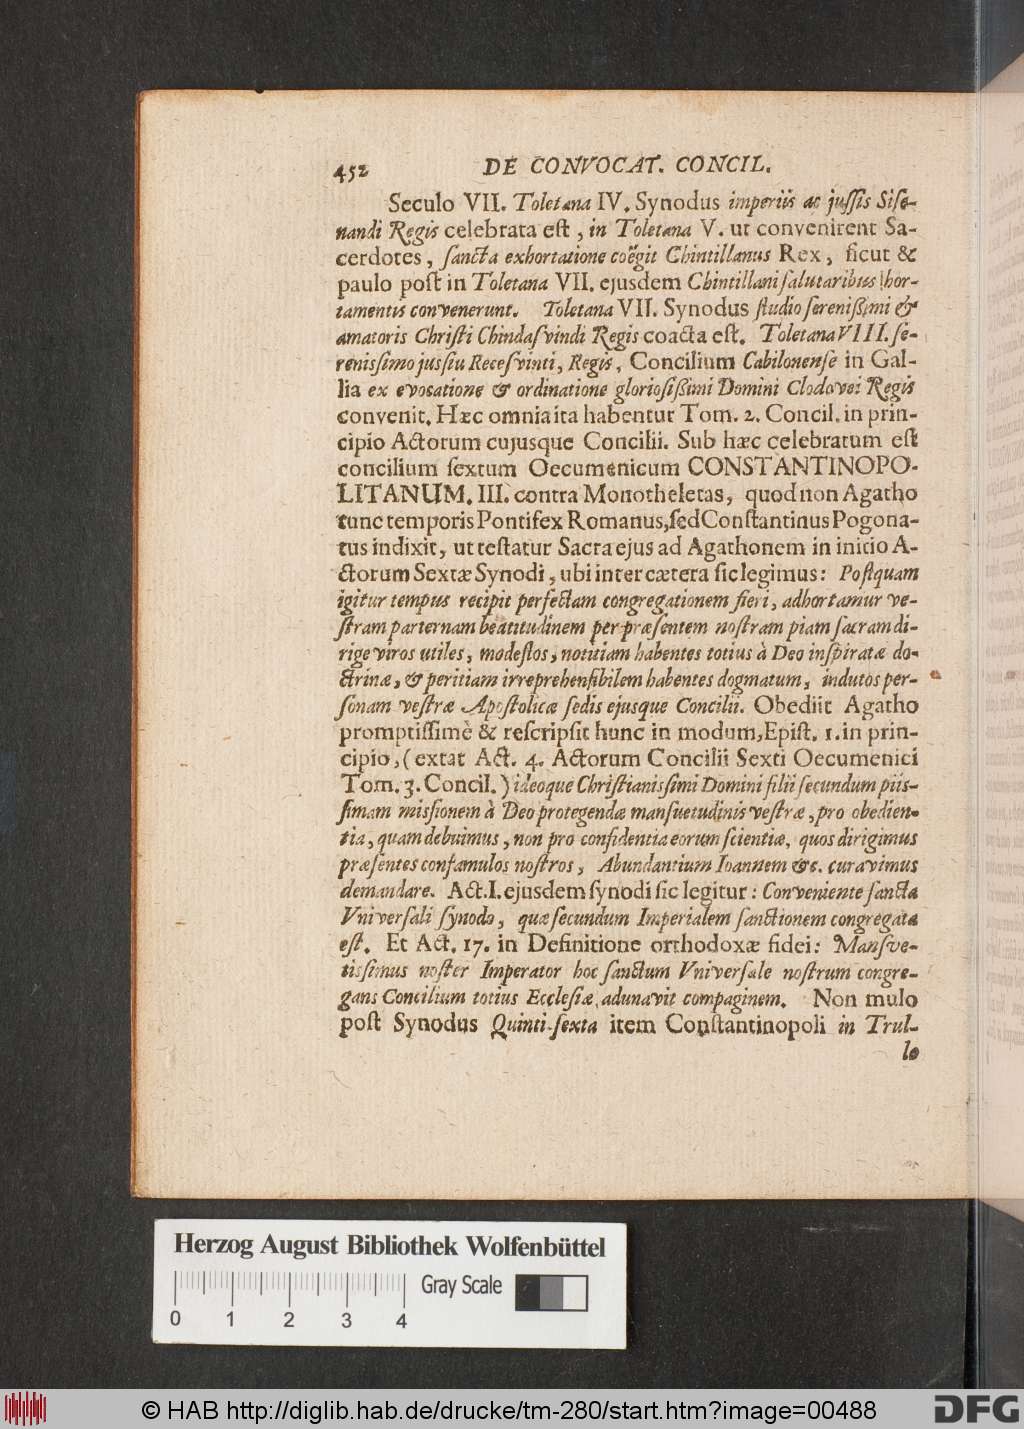 452 DE CONVOCAT. CONCIL.
Seculo VII. Toletana IV. Synodus imperiis ac jussis Sise-
nandi Regis celebrata est, in Toletana V. ut convenirent Sa-
cerdotes, sancta exhortatione coëgit Chintillanus Rex, sicut &
paulo post in Toletana VII. ejusdem Chintillani salutaribus hor-
tamentis convenerunt. Toletana VII. Synodus studio serenissimi &
amatoris Christi Chindasvindi Regis coacta est. Toletana VIII. se-
renissimo jussiu Recesvinti, Regis, Concilium Cabilonense in Gal-
lia ex evocatione & ordinatione gloriosissimi Domini Clodovei Regis
convenit. Hæc omnia ita habentur Tom. 2. Concil. in prin-
cipio Actorum cujusque Concilii. Sub hæc celebratum est
concilium sextum Oecumenicum CONSTANTINOPO-
LITANUM. III. contra Monotheletas, quod non Agatho
tunc temporis Pontifex Romanus, sed Constantinus Pogona-
tus indixit, ut testatur Sacra ejus ad Agathonem in initio A-
ctorum Sextæ Synodi, ubi inter cætera sic legimus: Postquam
igitur tempus recipit perfectam congregationem fieri, adhortamur ve-
stram parternam beatitudinem per præsentem nostram piam sacram di-
rige viros utiles, modestos, notitiam habentes totius à Deo inspiratæ do-
ctrinæ, & peritiam irreprehensibilem habentes dogmatum, indutos per-
sonam vestræ Apostolicæ sedis ejusque Concilii. Obediit Agatho
promptissimè & rescripsit hunc in modum, Epist. 1. in prin-
cipio, (extat Act. 4. Actorum Concilii Sexti Oecumenici
Tom. 3. Concil.) ideoque Christianissimi Domini filii secundum piis-
simam missionem à Deo protegendæ mansuetudinis vestræ, pro obedien-
tia, quam debuimus, non pro confidentia eorum scientiæ, quos dirigimus
præsentes confamulos nostros, Abundantium Ioannem &c. curavimus
demandare. Act. I. ejusdem synodi sic legitur: Conveniente sancta
Vniversali synodo, quæ secundum Imperialem sanctionem congregata
est. Et Act. 17. in Definitione orthodoxæ fidei: Mansve-
tissimus noster Imperator hoc sanctum Vniversale nostrum congre-
gans Concilium totius Ecclesiæ adunavit compaginem. Non mulo
post Synodus Quinti-sexta item Constantinopoli in Trul-
lo
Herzog August Bibliothek Wolfenbüttel
Gray Scale
0 1 2 3 4
© HAB http://diglib.hab.de/drucke/tm-280/start.htm?image=00488
DFG